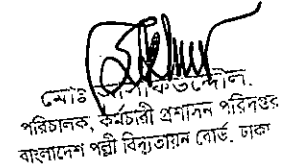 মোঃ
পরিচালক, কর্মচারী প্রশাসন পরিদপ্তর
বাংলাদেশ পল্লী বিদ্যুতায়ন বোর্ড. ঢাকা